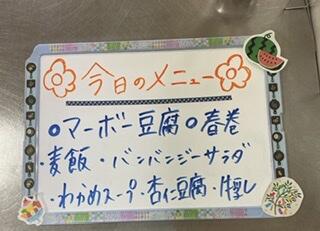 今日のメニュー
○マーボー豆腐○春巻
・麦飯・バンバンジーサラダ
・わかめスープ・杏仁豆腐・